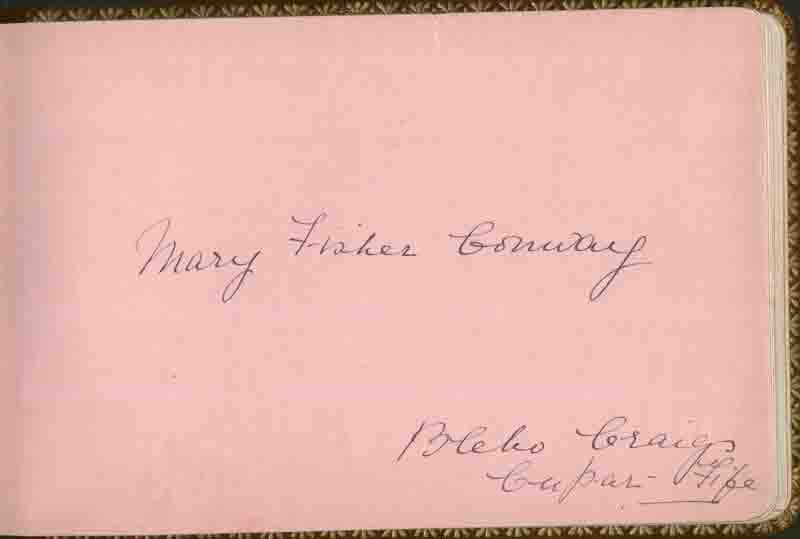 Mary Fisher Conway
Blebo Craigs
Cupar - Fife